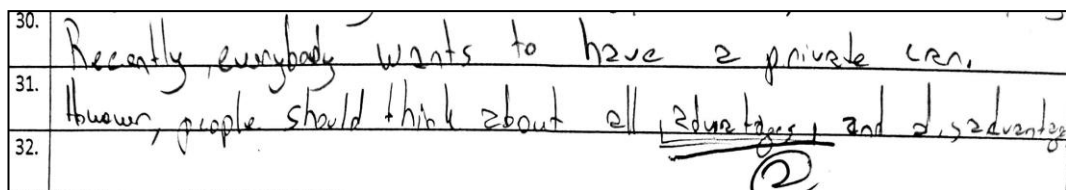 30. Recently, everybody wants to have a private car.
31. However, people should think about all advantages, and disadvantage
32.
2